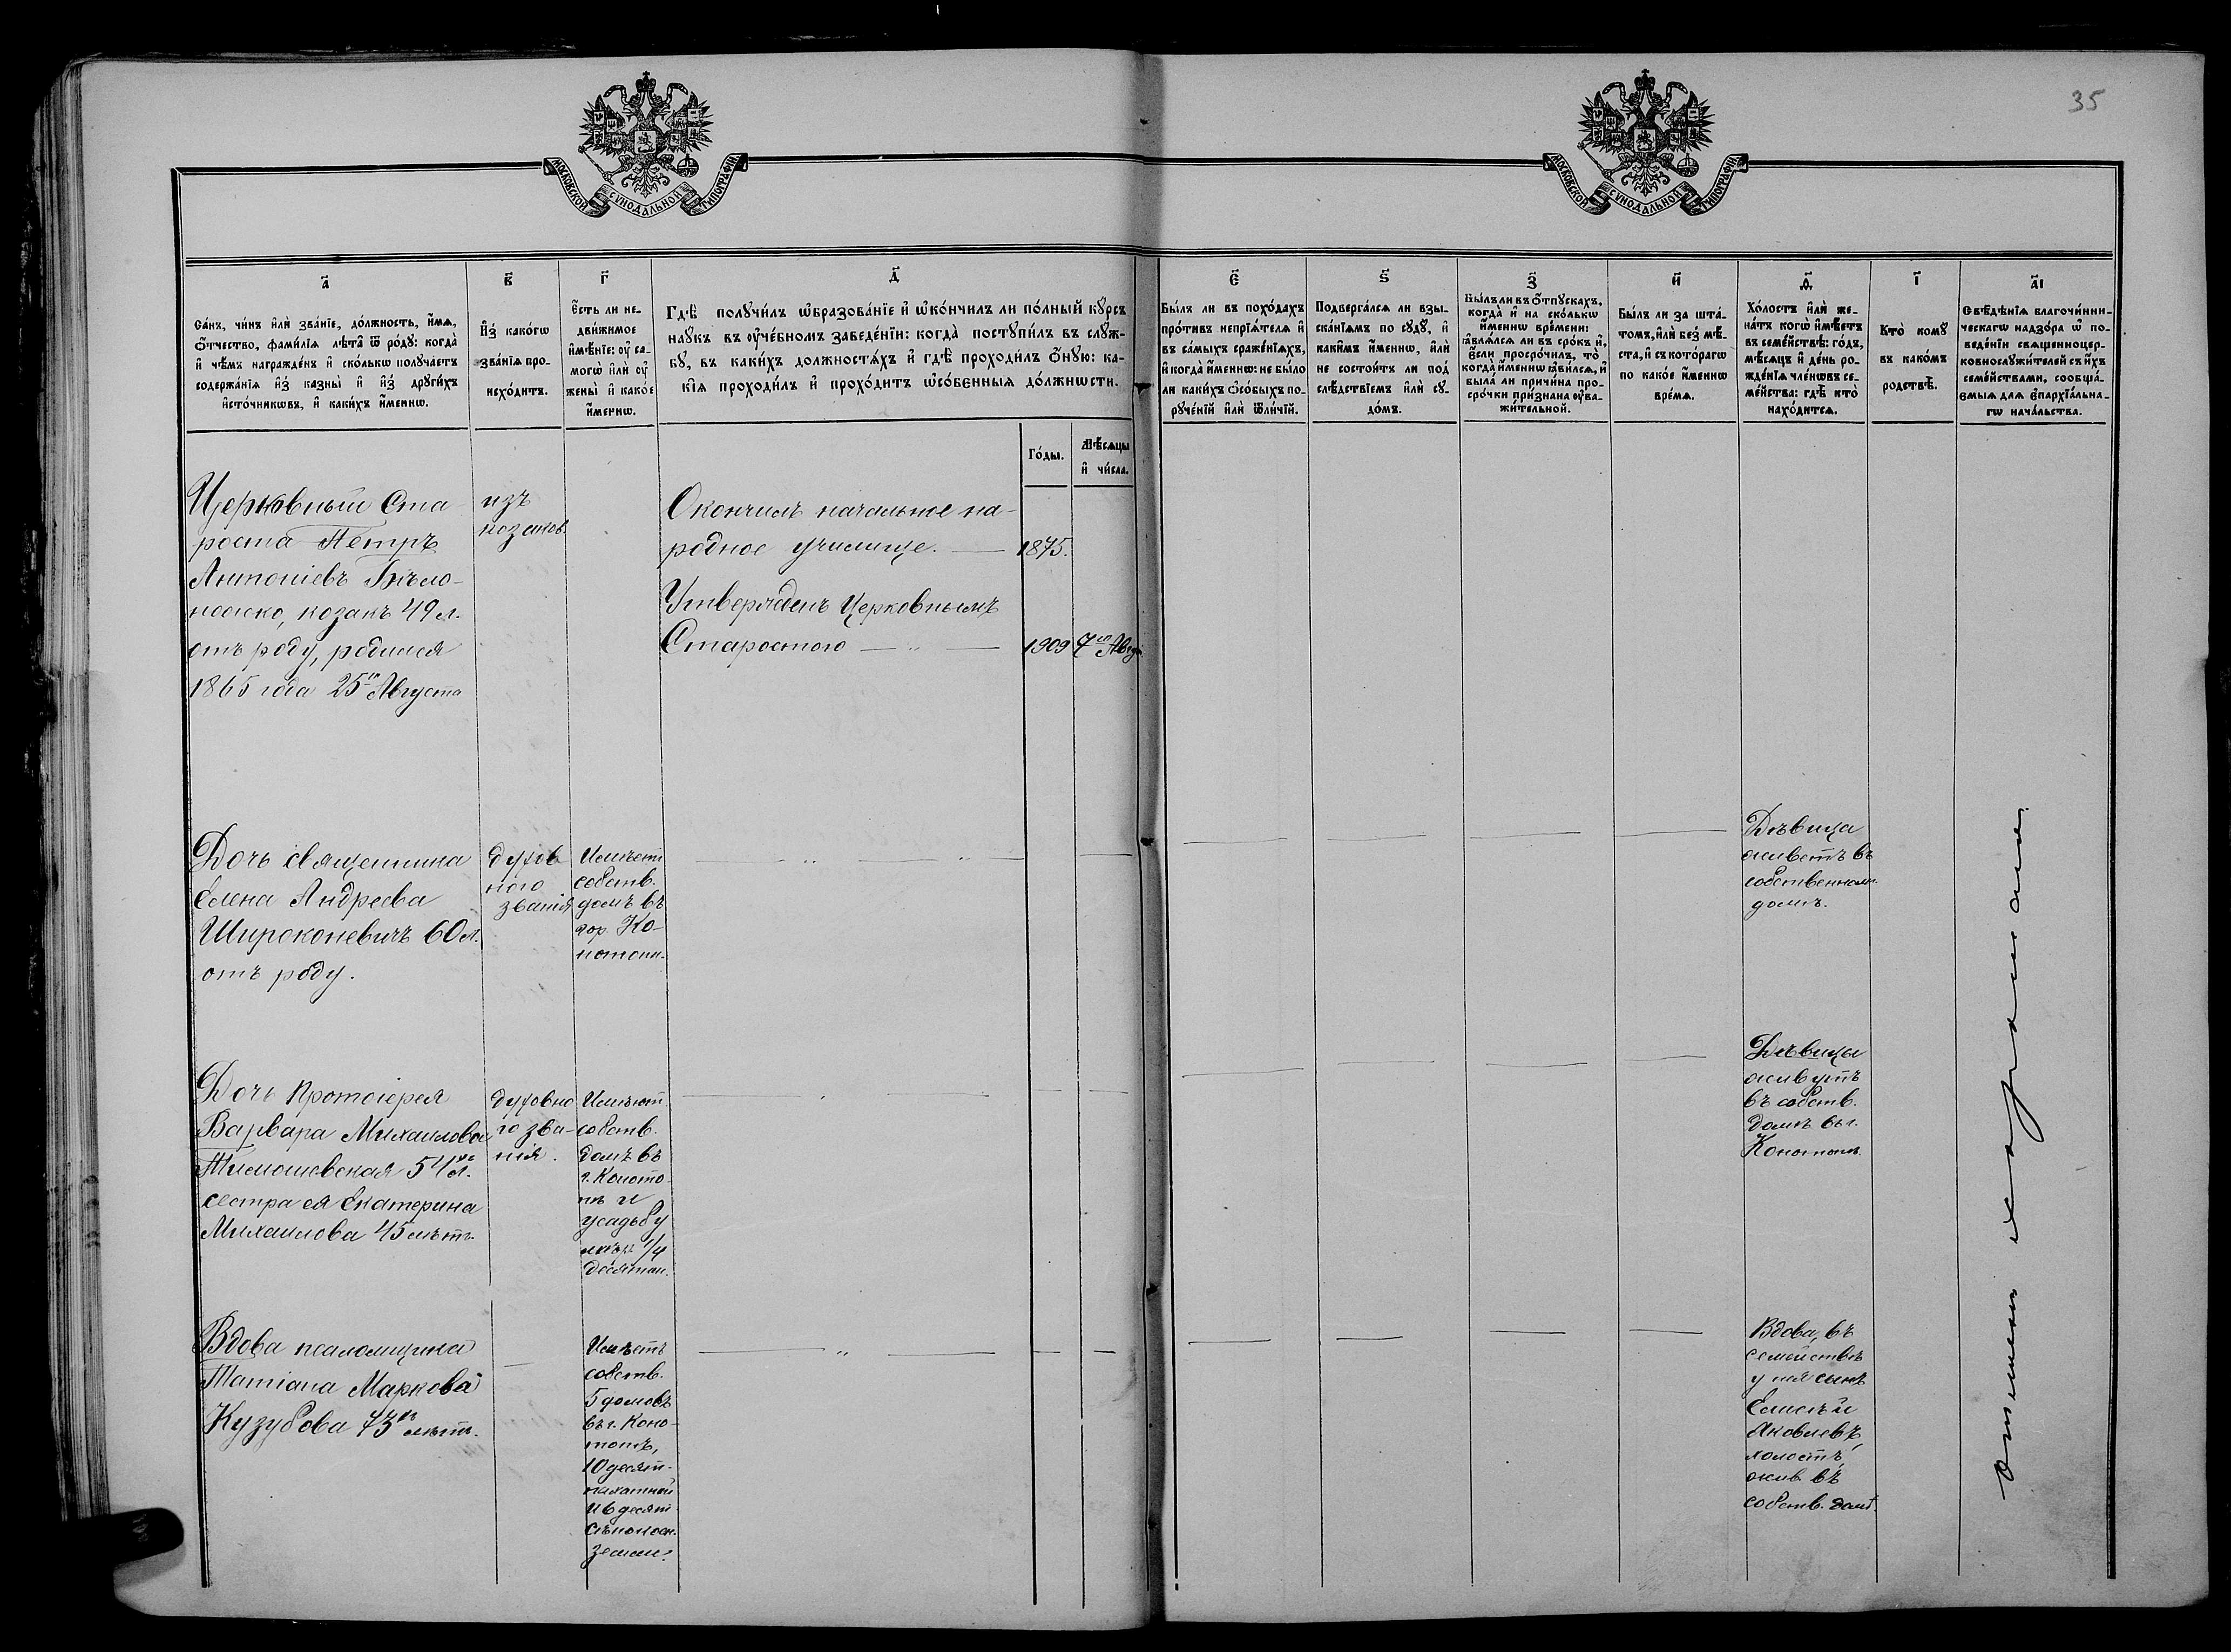 35
МОСКОВСКОЙ СУНОДАЛЬНОЙ ТИПОГРАФІИ
МОСКОВСКОЙ СУНОДАЛЬНОЙ ТИПОГРАФІИ
а҃
Са́нъ, чи́нъ и҆лѝ зва́нїе, до́лжность, и҆́мѧ,
ѻ҆́тчество, фами́лїѧ лѣ́та ѿ ро́дꙋ: когда̀
и҆ чѣ́мъ награжде́нъ и҆ ско́лькѡ полꙋча́етъ
содержа́нїѧ и҆з̾ казны̀ и҆ и҆з̾ дрꙋги́хъ
и҆сто́чникѡвъ, и҆ каки́хъ и҆́меннѡ.
в҃
И҆з̾ како́гѡ
зва́нїѧ про-
исхо́дитъ.
г҃
Е҆́сть ли не-
дви́жимое
и҆мѣ́нїе: ᲂу҆ са-
могѡ̀ и҆лѝ ᲂу҆
жены̀ и҆ како́е
и҆́меннѡ.
д҃
Гдѣ̀ полꙋчи́лъ ѡ҆бразова́нїе и҆ ѡ҆ко́нчилъ ли по́лный кꙋ́рсъ
наꙋ́къ въ ᲂу҆че́бномъ заведе́нїи: когда̀ постꙋпи́лъ въ слꙋ́ж-
бꙋ, въ каки́хъ должностѧ́хъ и҆ гдѣ̀ проходи́лъ ѻ҆́нꙋю: ка-
кі́ѧ проходи́лъ и҆ прохо́дитъ ѡ҆со́бєнныѧ до́лжнѡсти.
Го́ды.
Мѣ́сѧцы
и҆ чи́сла.
є҃
Бы́лъ ли въ похо́дахъ
про́тивъ непрїѧ́телѧ и҆
въ са́мыхъ сраже́нїѧхъ,
и҆ когда̀ и҆́меннѡ: не бы́ло
ли каки́хъ ѻ҆со́быхъ по-
рꙋче́нїй и҆лѝ ѿли́чїй.
ѕ҃
Подверга́лсѧ ли взы-
ска́нїѧмъ по сꙋдꙋ̀, и҆
каки̑мъ и҆́меннѡ, и҆лѝ
не состои́тъ ли под̾
слѣ́дствїемъ и҆лѝ сꙋ-
до́мъ.
з҃
Бы́лъ ли въ ѻ҆́тпꙋскахъ,
когда̀ и҆ на ско́лькѡ
и҆́меннѡ вре́мени:
ꙗ҆влѧ́лсѧ ли въ сро́къ и҆,
е҆́сли просро́чилъ, то̀
когда̀ и҆́меннѡ ꙗ҆ви́лсѧ, и҆
была́ ли причи́на про-
сро́чки при́знана ᲂу҆ва-
жи́тельной.
и҃
Бы́лъ ли за шта́-
томъ, и҆лѝ без̾ мѣ́-
ста, и҆ съ кото́рагѡ
по како́е и҆́меннѡ
вре́мѧ.
ѳ҃
Хо́лостъ и҆лѝ же-
на́тъ когѡ̀ и҆мѣ́етъ
въ семе́йствѣ: го́дъ,
мѣ́сѧцъ и҆ де́нь ро-
жде́нїѧ чле́нѡвъ се-
ме́йства: гдѣ̀ кто̀
нахо́дитсѧ.
і҃
Кто̀ комꙋ̀
въ како́мъ
родствѣ̀.
а҃і
Свѣ́дѣнїѧ благочи́нни-
ческагѡ надзо́ра ѡ҆ по-
веде́нїи свѧщенноцер-
ковнослꙋжи́телей съ и҆́хъ
семе́йствами, сообща́-
ємыѧ для є҆пархїа́льна-
гѡ нача́льства.
Церковный Ста
роста Петръ
Антоніевъ Бѣло-
ножко, козакъ 49 л.
отъ роду, родился
1865 года 25го Августа
изъ
козаков.
Окончилъ начальное на-
родное училище. — 1875.
Утвержденъ Церковнымъ
Старостою — „ — 1909 7го Авгу.
Дочь священника
Елена Андреева
Широконевичъ 60 л.
отъ роду.
духов
ного
званія
Имѣетъ
собств.
домъ въ
гор. Ко-
нотопѣ.
Дѣвица
живетъ въ
собственномъ
домѣ.
Дочь Протоіерея
Варвара Михаилова
Тимошевская 54 л.
сестра ея Екатерина
Михаилова 45 лѣтъ.
духовна
го зва-
нія.
Имѣют.
собств.
домъ въ
г. Коното-
пѣ и
усадьбу
мѣрн 1/4
десятин.
Дѣвицы
живутъ
въ собств.
домѣ въ г.
Конотопѣ.
Вдова псаломщика
Татіана Маркова
Кузубова 73 лѣтъ.
Имѣетъ
собств.
5 домовъ
въ г. Коно-
топѣ,
10 десят.
пахатной
и 6 десят
сѣнокосн.
земли.
Вдова, въ
семействѣ
у нея сынъ
Елисѣй
Яковлевъ,
холостъ,
жив. въ
собств. домѣ.